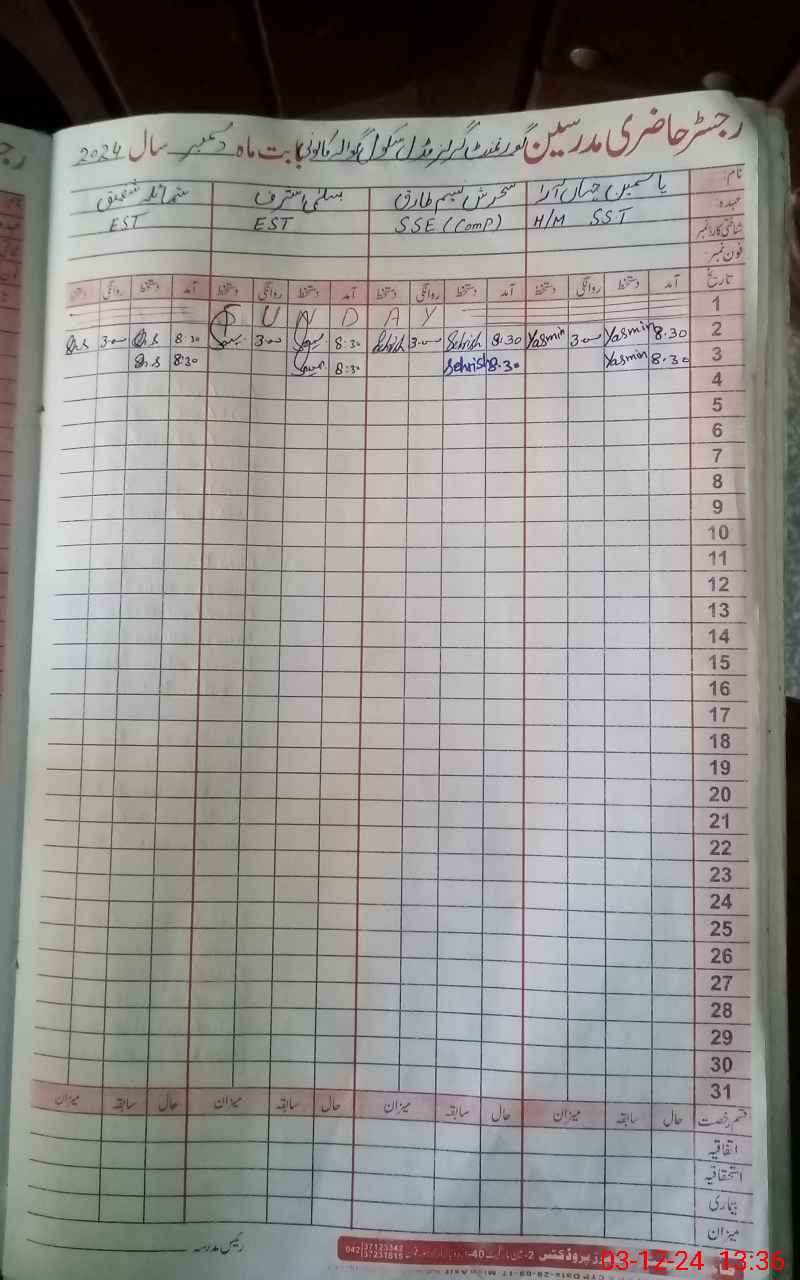 رجسٹر حاضری مدرسین گورنمنٹ گرلز مڈل سکول گوالہ کالونی بابت ماہ دسمبر سال 2024
نام: یاسمین جہاں آرا سحرش نسیم طارق سلمیٰ اشرف شمائلہ شفیق
عہدہ: H/M SST SSE (Comp) EST EST
شناختی کارڈ نمبر
فون نمبر:
تاریخ آمد دستخط روانگی دستخط آمد دستخط روانگی دستخط آمد دستخط روانگی دستخط آمد دستخط روانگی دستخط
1 SUNDAY
2 8.30 Yasmin 3:00 Yasmin 8:30 Sehrish 3:00 Sehrish 8:30 3:00 8:30 3:00
3 8.30 Yasmin 8.30 Sehrish 8:30 8:30
4
5
6
7
8
9
10
11
12
13
14
15
16
17
18
19
20
21
22
23
24
25
26
27
28
29
30
31
قسم رخصت حال سابقہ میزان حال سابقہ میزان حال سابقہ میزان حال سابقہ میزان
اتفاقیہ
استحقاقیہ
بیماری
میزان
رئیس مدرسہ
042 37123342
37231618
03-12-24 13:36